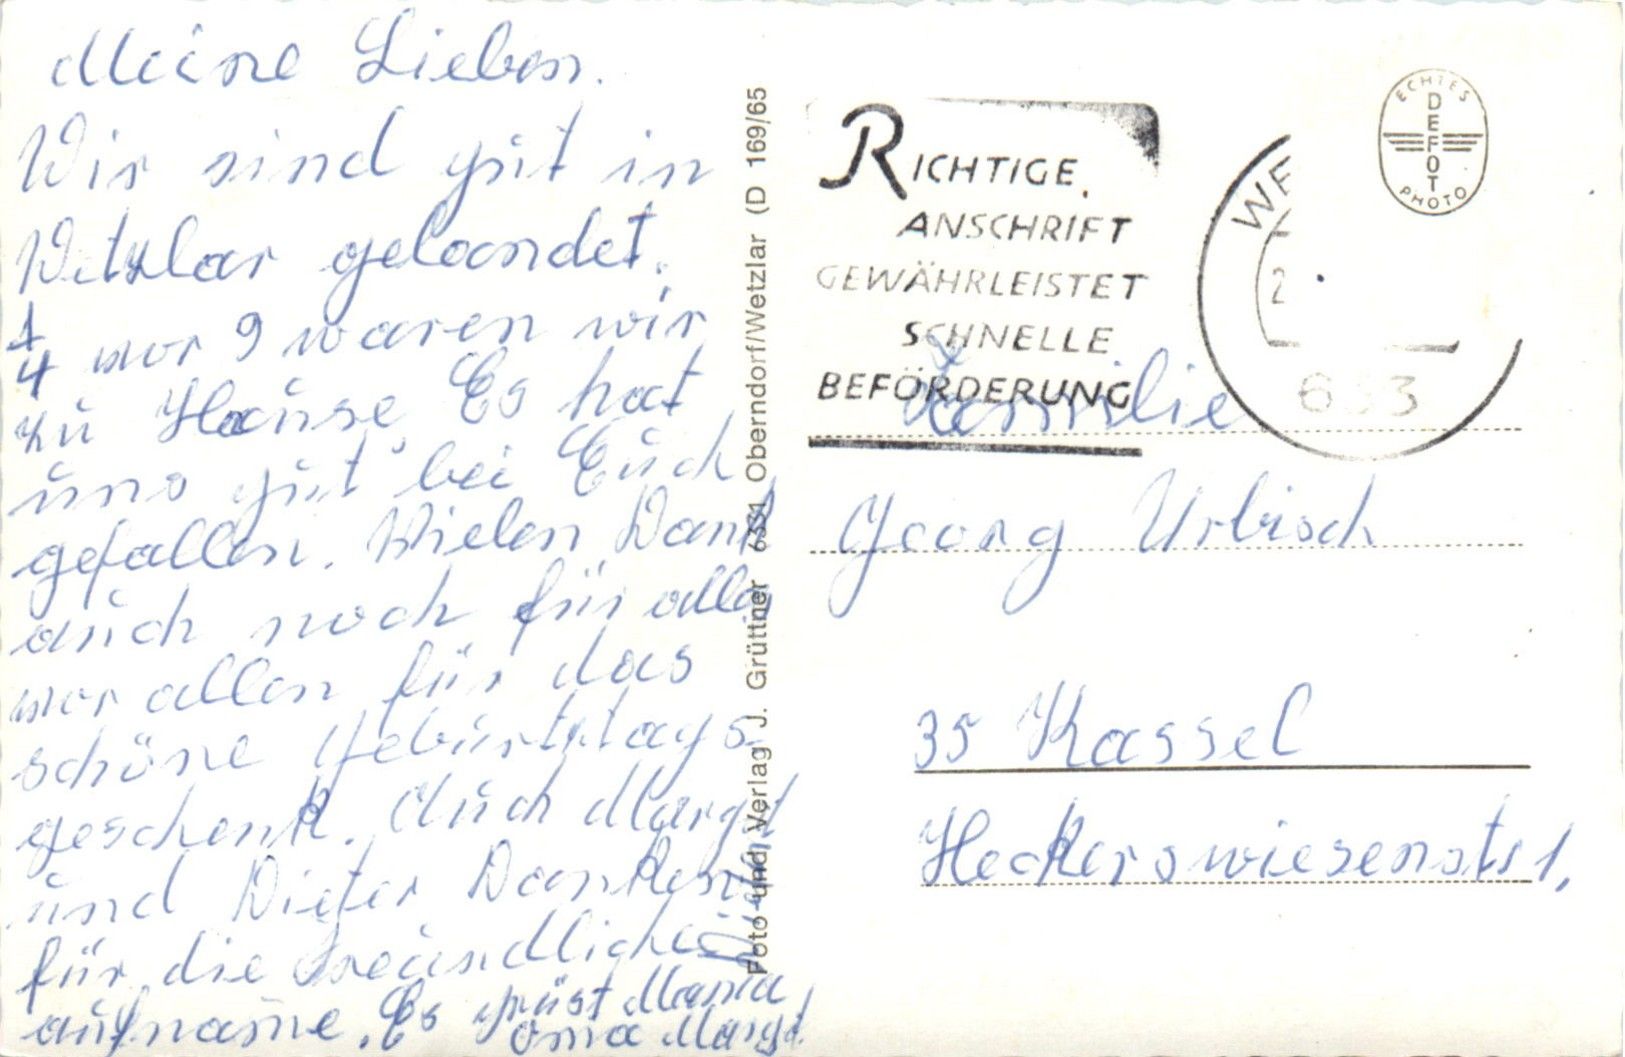 Meine Lieben.
Wir sind gut in
Wetzlar gelandet.
1/4 vor 9 waren wir
zu Hause Es hat
uns gut bei Euch
gefallen. Vielen Dank
auch noch für alles
vor allen für das
schöne Geburtstags
geschenk. Auch Margit
und Dieter Danken
für die freundliche
aufname. Es grüst Mama
Oma Margit
Foto und Verlag J. Grüttner 6331 Oberndorf/Wetzlar (D 169/65
RICHTIGE
ANSCHRIFT
GEWÄHRLEISTET
SCHNELLE
BEFÖRDERUNG
WE
2
633
ECHTES
DEFOT
PHOTO
Familie
Georg Urbisch
35 Kassel
Heckerswiesenstr 1,